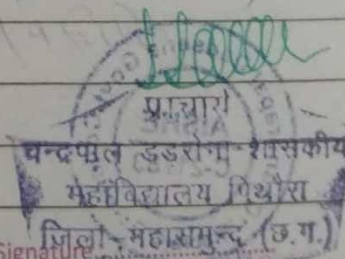 प्राचार्य
चन्द्रपाल डडसेना शासकीय
महाविद्यालय पिथौरा
जिला-महासमुन्द (छ.ग.)
Signature